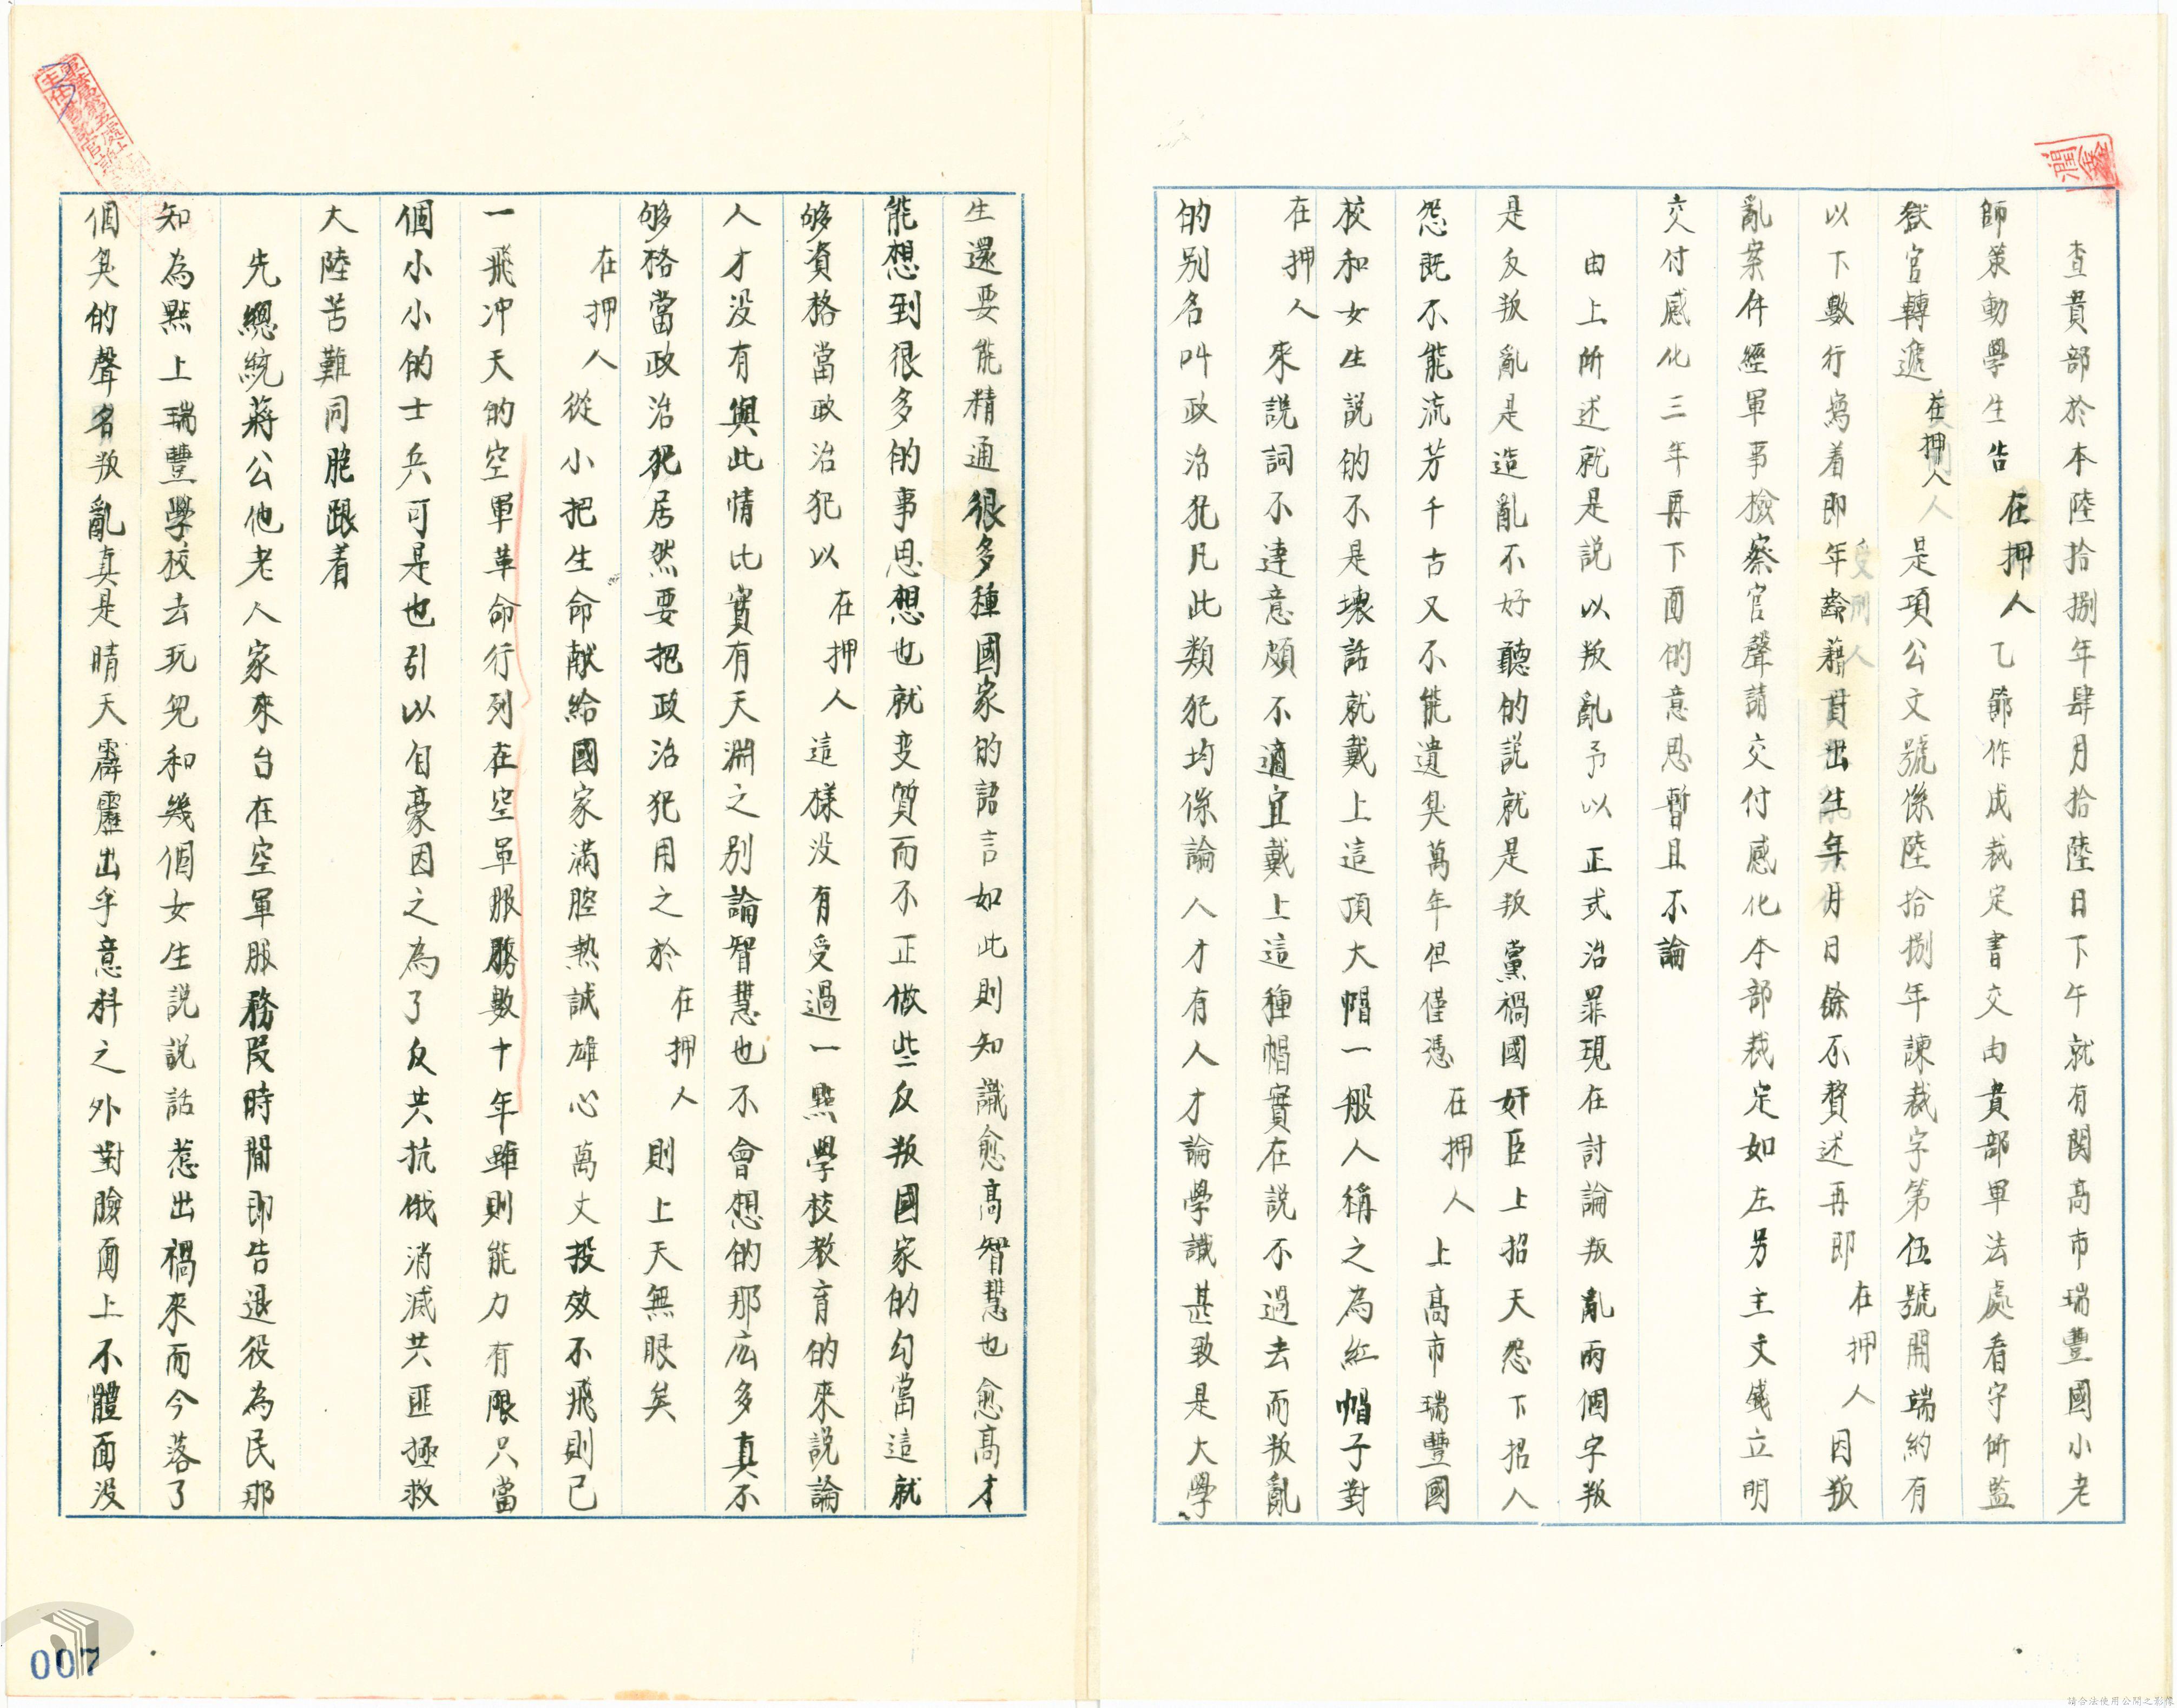 查貴部於本陸拾捌年肆月拾陸日下午就有関高市瑞豐國小老
師策動學生告在押人乙節作成裁定書交由貴部軍法處看守所監
獄官轉遞在押人是項公文號係陸拾捌年諫裁字第伍號開端約有
以下數行寫着即年齡藉貫出生年月日餘不贅述再即在押人因叛
亂案件經軍事檢察官聲請交付感化本部裁定如左另主文儀立明
交付感化三年再下面的意思暫且不論
由上所述就是説以叛亂予以正式治罪現在討論叛亂兩個字叛
是反叛亂是造亂不好聽的説就是叛黨禍國奸臣上招天怨下招人
怨既不能流芳千古又不能遺臭萬年但僅憑在押人上高市瑞豐國
校和女生説的不是壞話就戴上這頂大帽一般人稱之為紅帽子對
在押人來説詞不達意頗不適宜戴上這種帽實在説不過去而叛亂
的別名叫政治犯凡此類犯均係論人才有人才論學識甚致是大學
生還要能精通很多種國家的語言如此則知識愈高智慧也愈高才
能想到很多的事思想也就变質而不正做些反叛國家的勾當這就
够資格當政治犯以在押人這樣没有受過一點學校教育的來説論
人才没有與此情比實有天淵之别論智慧也不會想的那広多真不
够格當政治犯居然要把政治犯用之於在押人則上天無眼矣
在押人從小把生命献給國家滿腔熱誠雄心萬丈投效不飛則已
一飛冲天的空軍革命行列在空軍服務數十年雖則能力有限只當
個小小的士兵可是也引以自豪因之為了反共抗俄消滅共匪拯救
大陸苦難同胞跟着
先總統蔣公他老人家來台在空軍服務段時間即告退役為民那
知為點上瑞豐學校去玩兒和幾個女生説説話惹出禍來而今落了
個臭的聲名叛亂真是晴天霹靂出乎意料之外對臉面上不體面没
007
請合法使用公開之影像